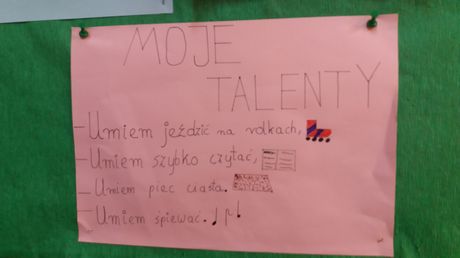 MOJE
TALENTY
- Umiem jeździć na rolkach,
- Umiem szybko czytać,
- Umiem piec ciasta.
- Umiem śpiewać.